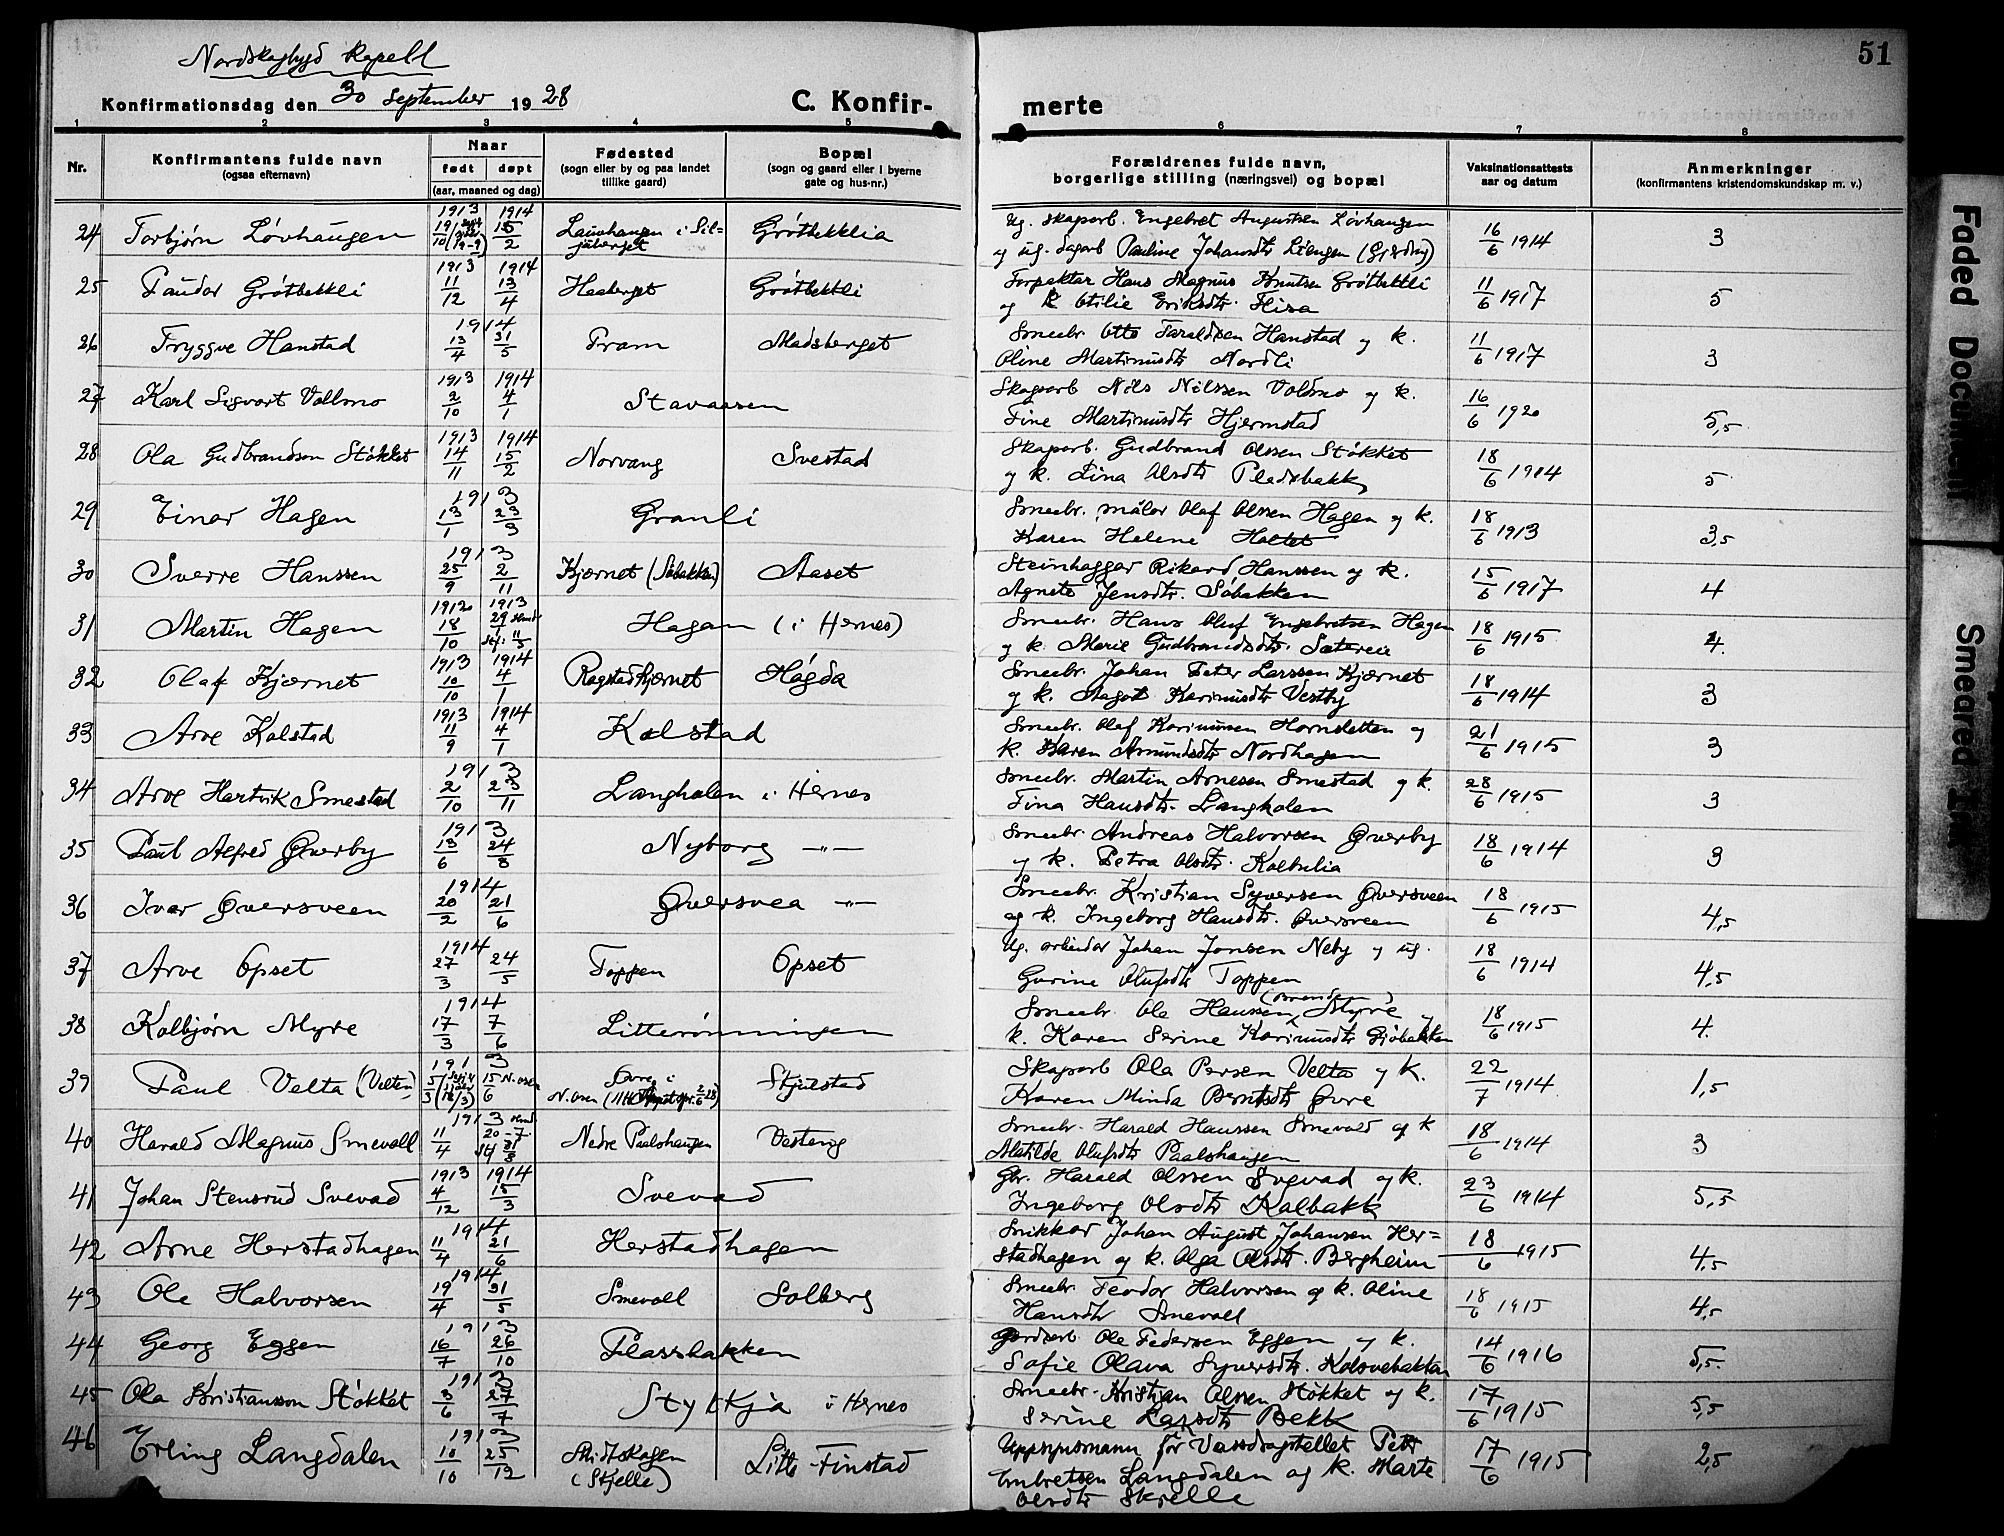 51
Nordskogbygd kapell
Konfirmationsdag den 30 september 1928
C. Konfir- merte
1 2 3 4 5 6 7 8
Nr.
Konfirmantens fulde navn
(ogsaa efternavn)
Naar
født døpt
(aar, maaned og dag)
Fødested
(sogn eller by og paa landet
tillike gaard)
Bopæl
(sogn og gaard eller i byerne
gate og hus-nr.)
Forældrenes fulde navn,
borgerlige stilling (næringsvei) og bopæl
Vaksinationsattests
aar og datum
Anmerkninger
(konfirmantens kristendomskundskap m. v.)
24 Torbjørn Løvhaugen 1913 19/10 1914 15/2 Lauvhaugen i Sil-
juberget Grøtbekklia
Ug. skogarb. Engebret Augustsen Løvhaugen
og ug. dagarb Pauline Johansdtr 16/6 1914 3
25 Grøtbekkli 1913 11/12 1914 13/4 Haaberget Grøtbekkli
Forpakter Hans Magnus Knutsen Grøtbekkli
og k Otilie Eriksdtr. Flisa 11/6 1917 5
26 Tryggve Hanstad 1914 13/4 31/5 Fram Madsberget
Smeebr. Otto Taraldsen Hanstad og k.
Oline Martinusdtr Nordli 11/6 1917 3
27 Karl Sigvart Voldmo 1913 2/10 1914 4/1 Stavaasen
Skogarb Nils Nilssen Voldmo og k.
Tine Martinusdtr Hjermstad 16/6 1920 5,5
28 Ola Gudbrandson Støkket 1913 14/11 1914 15/2 Norvang Svestad
Skogarb. Gudbrand Olssen Støkket
og k. Lina Olsdtr 18/6 1914 5
29 Einar Hagen 1913 13/1 23/3 Granli
Smeebr. maler Olaf Olssen Hagen og k.
Karen Helene Holtet 18/6 1913 3,5
30 Sverre Hanssen 1913 25/9 2/11 Kjærnet (Søbakken) Aaset
Steinhugger Rikard Hanssen og k.
Agnete Jensdtr. Søbakken 15/6 1917 4
31 Martin Hagen 1912 18/10 1913 29 Hagan (i Hernes)
Smeebr. Hans Oluf Engebretsen Hagen
og k. Marie Gudbrandsdtr. Sætereie 18/6 1915 4
32 Olaf Kjærnet 1913 10/10 1914 4/1 Rogstadkjærnet Høgda
Smeebr. Johan Peter Larssen Kjærnet
og k. Aagot Karinusdtr Vestby 18/6 1914 3
33 Arve Kolstad 1913 11/9 1914 4/1 Kolstad
Smeebr. Olaf Karinussen Hornsletten og
k. Karen Amundsdtr Nordhagen 21/6 1915 3
34 Arve Hartvik Smestad 1913 2/10 23/11 Langholen i Hernes
Smeebr. Martin Arnesen Smestad og k.
Tina Hansdtr. Langholen 28/6 1915 3
35 Paul Alfred Øverby 1913 13/6 24/8 Nyborg -"-
Smeebr. Andreas Halvorsen Øverby
og k. Petra Olsdtr. Kolbulia 18/6 1914 3
36 Ivar Øversveen 1914 20/2 21/6 Øversvea -"-
Smeebr. Kristian Syversen Øversveen
og k. Ingeborg Hansdtr. Øversveen 18/6 1915 4,5
37 Arve Opset 1914 27/3 24/5 Toppen Opset
Ug. arbeider Johan Jonsen Neby og ug.
Gurine Olufsdtr Toppen 18/6 1914 4,5
38 Kolbjørn Myre 1914 17/3 7/6 Litterønningen
Smeebr. Ole Hanssen Myre og
k. Karen Serine Karinusdtr Gjøbekken 18/6 1915 4
39 Paul Velta (Velten) 1913 5/3 15/6 N. Osen Øvre i
N. Osen Skjulstad
Skogarb Ola Persen Velta og k.
Karen Minda Berntsdtr Øvre 22/7 1914 1,5
40 Harald Magnus Smevoll 1913 11/4 20-7. Nedre Paalshaugen Vesteng
Smeebr. Harald Hanssen Smevold og k
Matilde Olufsdtr Paalshaugen 18/6 1914 3
41 Johan Stensrud Svevad 1913 4/12 1914 15/3 Svevad
Gbr. Harald Olssen Svevad og k.
Ingeborg Olsdtr Kolbakk 23/6 1914 5,5
42 Arne Herstadhagen 1914 11/4 21/6 Herstadhagen
Snikker Johan August Johansen Her=
stadhagen og k. Olga Olsdtr. Bergheim 18/6 1915 4,5
43 Ole Halvorsen 1914 19/4 31/5 Smevoll Solberg
Smeebr. Teodor Halvorsen og k. Oline
Hansdtr Smevoll 18/6 1915 4,5
44 Georg Eggen 1913 16/7 26/10 Plassbakken
Gardarb. Ole Pedersen Eggen og k.
Sofie Olava Syversdtr. Kolsvebakken 14/6 1916 5,5
45 Ola Kristiansson Støkket 1913 3/6 27/7 Stykkja i Hernes
Smeebr. Kristian Olssen Støkket og k.
Serine Larsdtr Bekk 17/6 1915 5,5
46 Erling Langdalen 1913 10/10 25/12 Midtskogen
(Skjelle) Litle-Finstad
Uppsynsmann for Vassdragstellet Petter
Embretsen Langdalen og k. Marte
Olsdtr Skjelle 17/6 1915 2,5
Faded Document
Smeared Ink